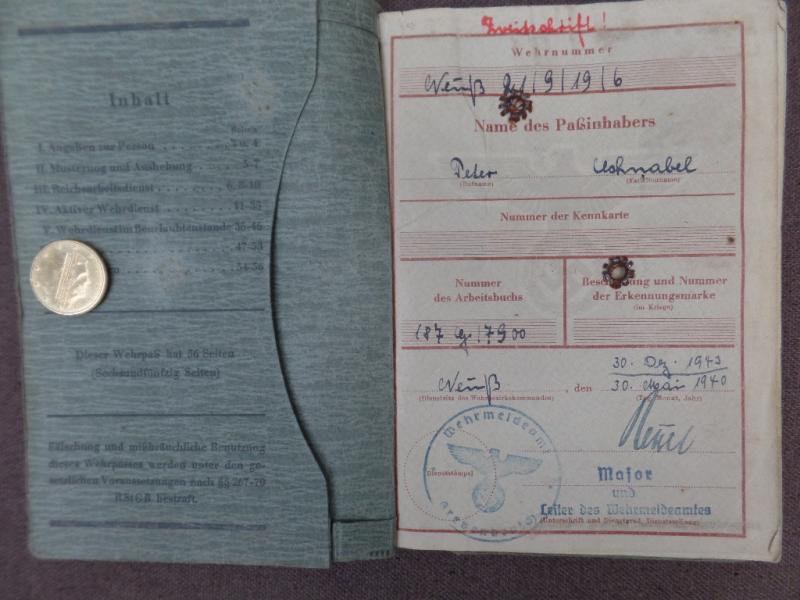 Inhalt
Seiten
I. Angaben zur Person 3 u. 4
II. Musterung und Aushebung 5-7
III. Reichsarbeitsdienst 6, 8-10
IV. Aktiver Wehrdienst 11-35
V. Wehrdienst im Beurlaubtenstande 36-46
47-53
54-56
Dieser Wehrpaß hat 56 Seiten
(Sechsundfünfzig Seiten)
Fälschung und mißbräuchliche Benutzung
dieses Wehrpasses werden unter den ge-
setzlichen Voraussetzungen nach §§ 267-70
RStGB. bestraft.
Zweitschrift!
Wehrnummer
Neuß 9/19/6
Name des Paßinhabers
Peter Uhnabel
(Rufname) (Familienname)
Nummer der Kennkarte
Nummer
des Arbeitsbuchs
und Nummer
der Erkennungsmarke
(im Kriege)
187 7900
30. Dez. 1943
Neuß, den 30. Mai 1940
(Dienststelle des Wehrbezirkskommandos) (Tag, Monat, Jahr)
Wehrmeldeamt
(Dienststempel)
Major
und
Leiter des Wehrmeldeamtes
(Unterschrift und Dienstgrad, Dienststellung)